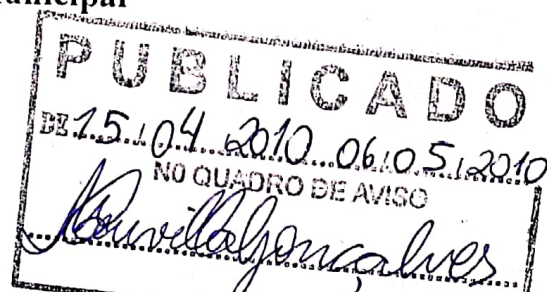 unicipal
PUBLICADO
DE 15.04.2010 06.05.2010
NO QUADRO DE AVISO
Gonçalves